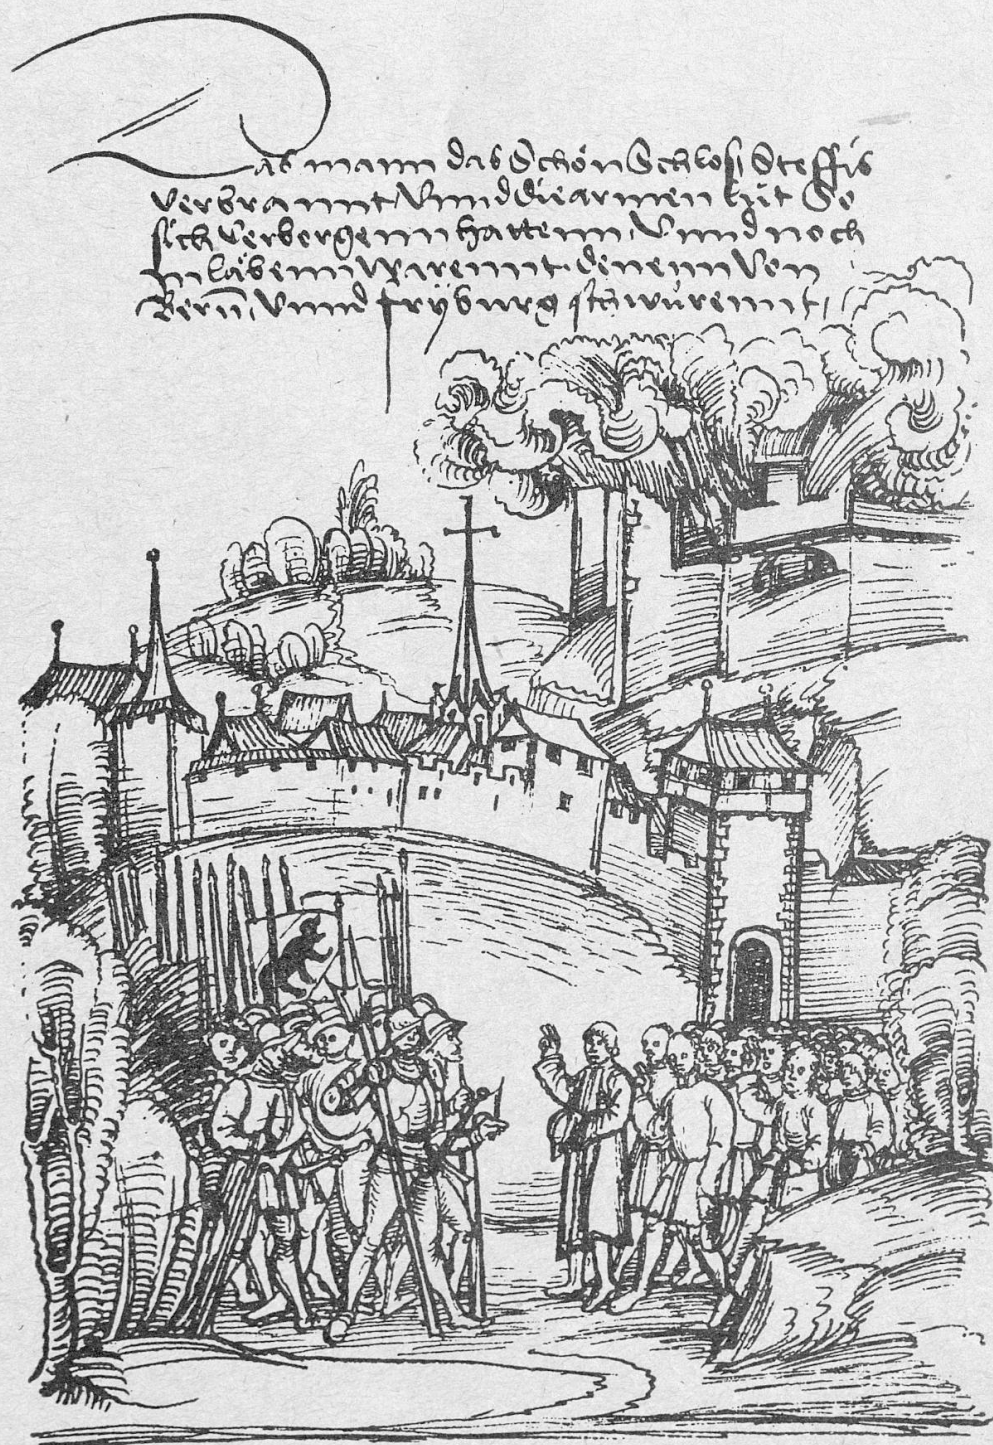 Das mann das Schön Schlosß Steffis
verbrannt Vnnd die armen Lüt So
sich verbergenn hattenn, Vnnd noch
in läbenn warennt. denenn Von
Bernn, Vnnd fryburg schwürennt,